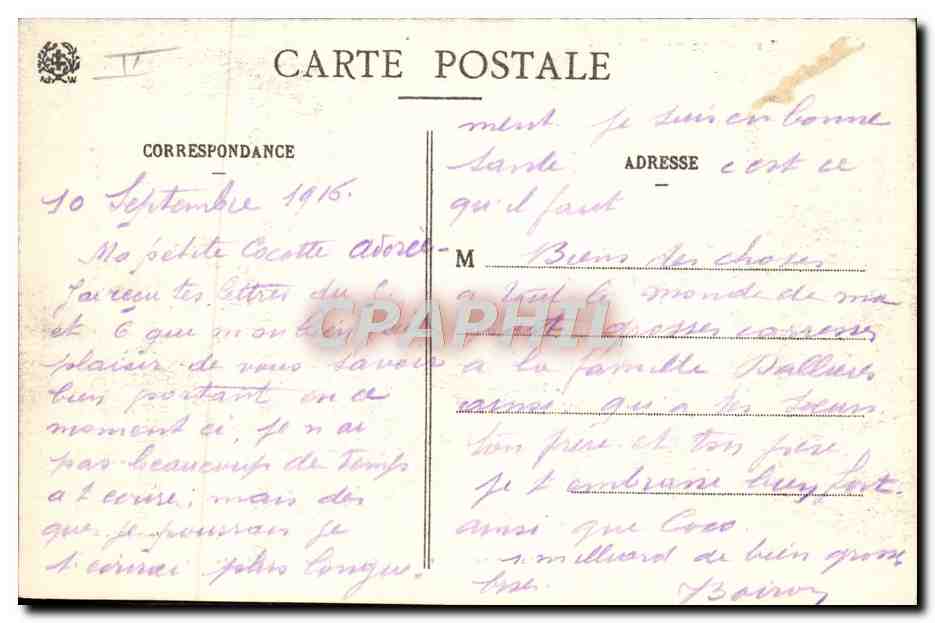 CARTE POSTALE
CORRESPONDANCE
10 Septembre 1916.
Ma petite Cocotte adorée
J'ai recu tes lettres du 5
et 6 que mon bien
plaisir de vous savoir
bien portant en ce
moment ci, je n ai
pas beaucoup de temps
a t ecrire, mais dès
que je pourrais je
t'ecrirai plus longue-
ment. je suis en bonne
santé ADRESSE c est ce
qu'il faut
M Biens des choses
a tout le monde de ma
part grosses caresses
a la famille Dallieres
ainsi qui a tes soeurs
ton frère et ton père.
je t embrasse bien fort.
ainsi que Coco.
1 milliard de bien grosse
bses.
Boiron
CPAPHIL